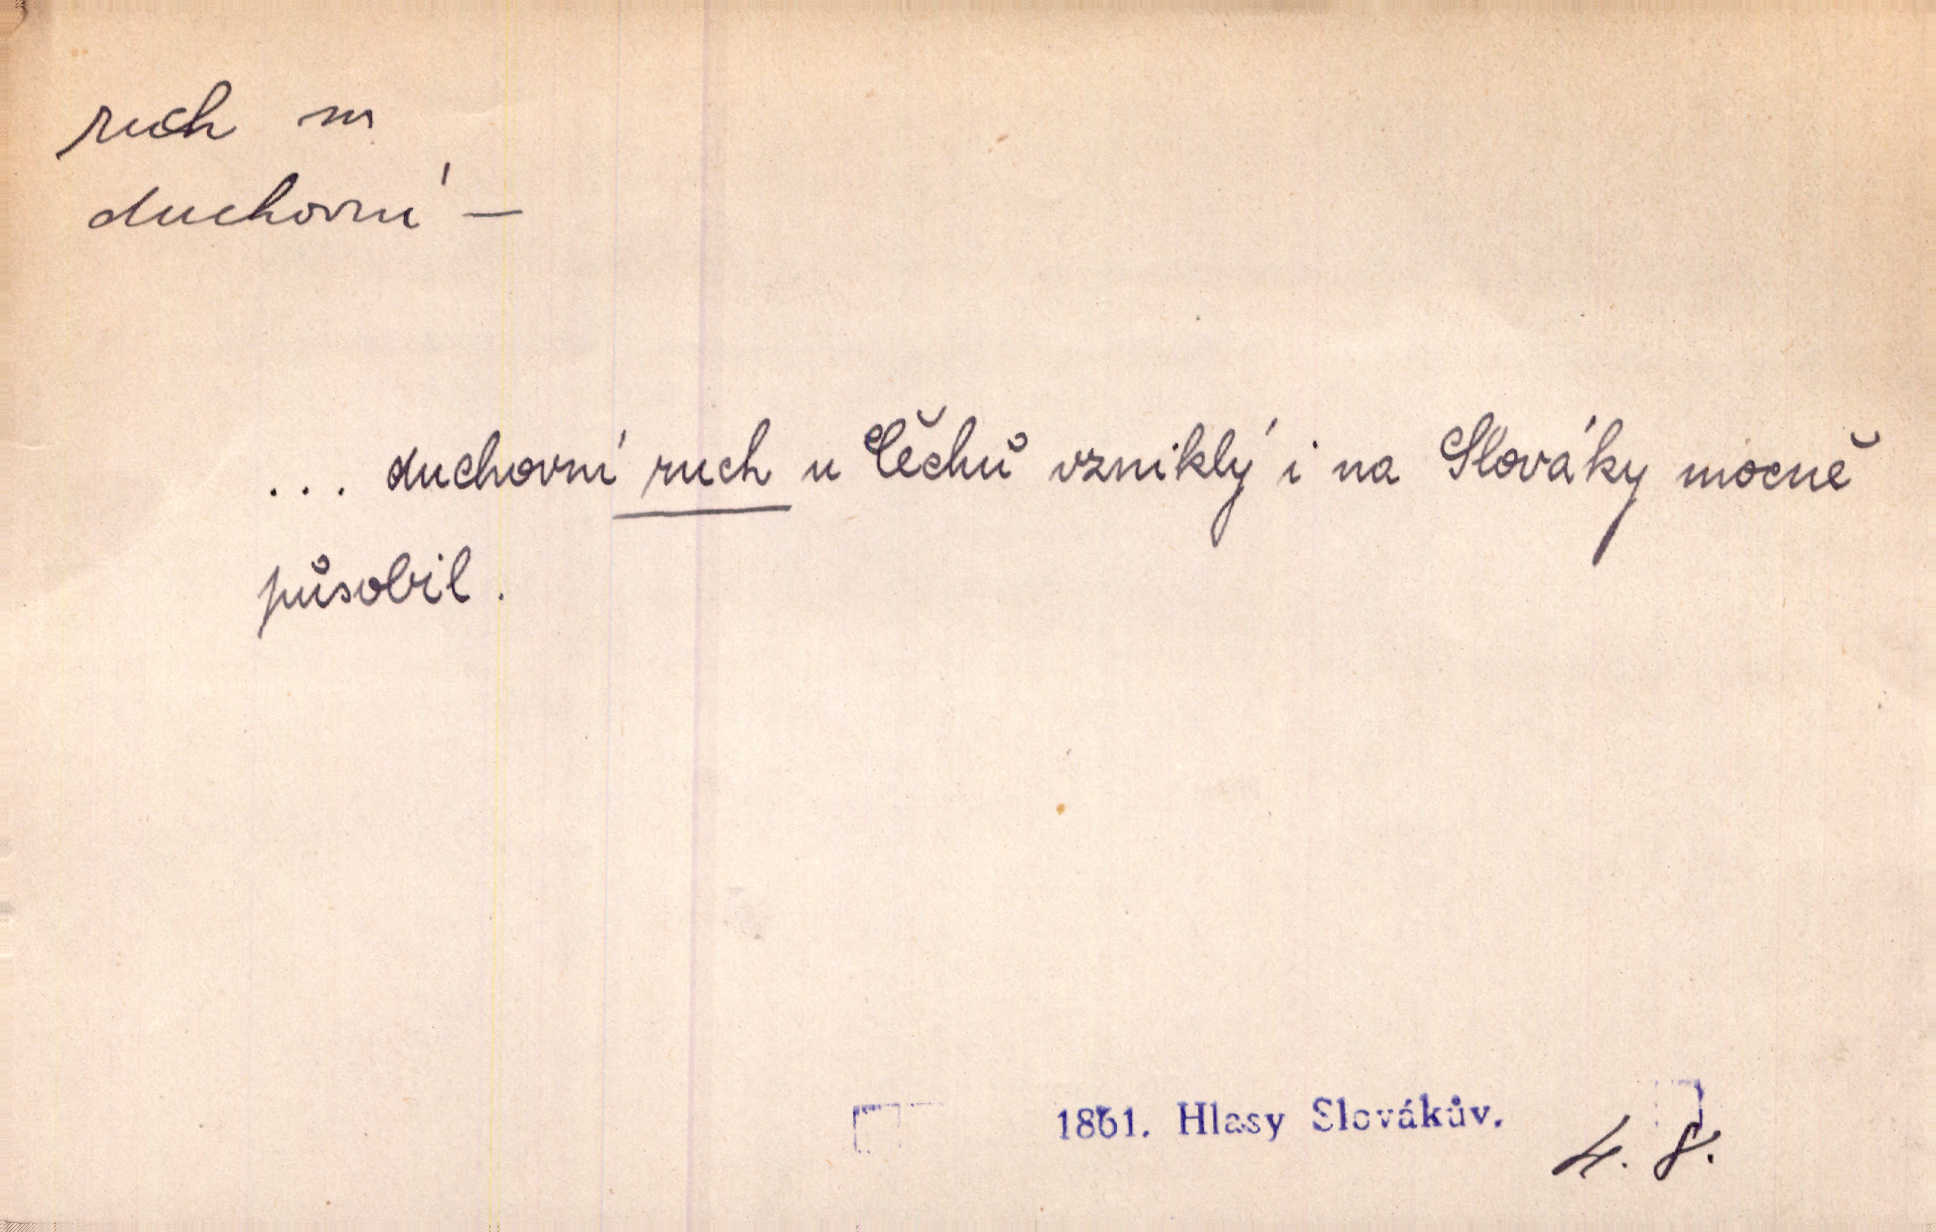 ruch m
duchovní —
... duchovní ruch u Čechů vzniklý i na Slováky mocně
působil.
1861. Hlasy Slovákův.
4. 8.